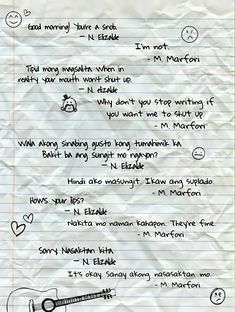 Good morning! You're a snob.
- N. Elizalde
I'm not.
- M. Marfori
Tipid mong magsalita when in
reality your mouth won't shut up.
- N. elizalde
Why don't you stop writing if
you want me to shut up.
- M. Marfori
Wala akong sinabing gusto kong tumahimik ka.
Bakit ba ang sungit mo ngayon?
- N. Elizalde
Hindi ako masungit. Ikaw ang suplado.
- M. Marfori
How's your lips?
- N. Elizalde
Nakita mo naman kahapon. They're fine.
- M. Marfori
Sorry Nasaktan kita
- N. Elizalde
It's okay. Sanay akong nasasaktan mo.
- M. Marfori